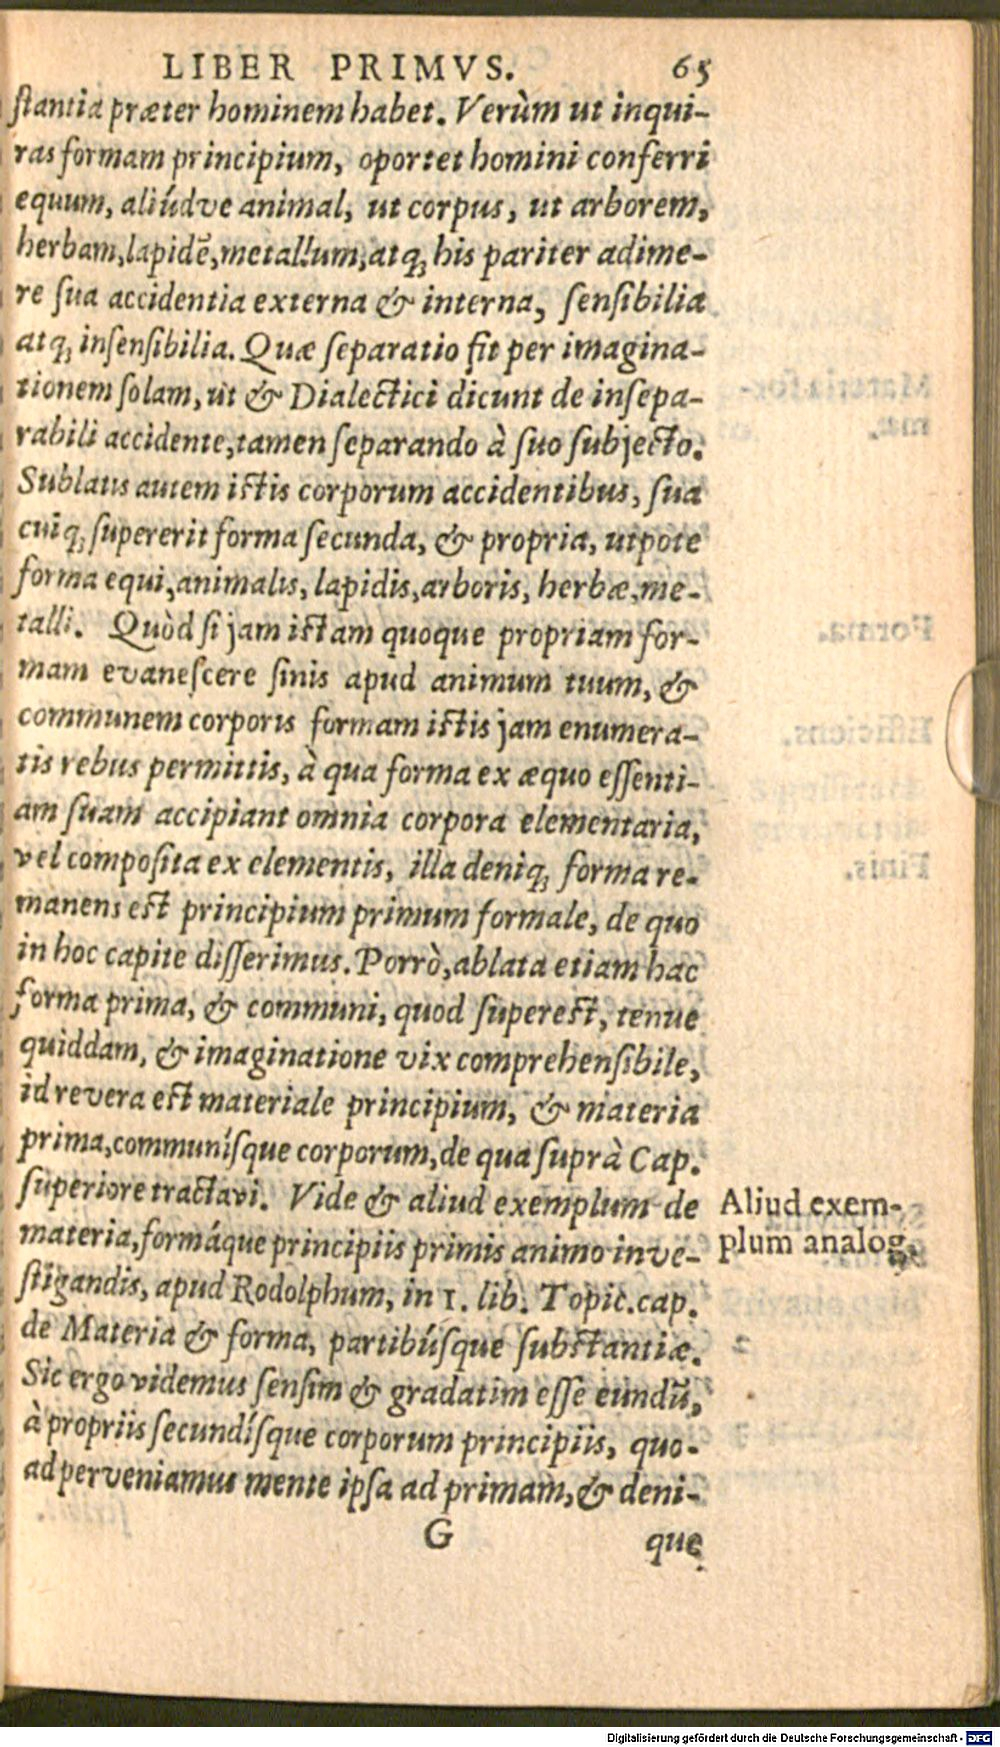 LIBER PRIMVS. 65
stantia præter hominem habet. Verùm ut inqui-
ras formam principium, oportet homini conferri
equum, aliúdve animal, ut corpus, ut arborem,
herbam, lapidẽ, metallum, atq; his pariter adime-
re sua accidentia externa & interna, sensibilia
atq; insensibilia. Quæ separatio fit per imagina-
tionem solam, ut & Dialectici dicunt de insepa-
rabili accidente, tamen separando à suo subjecto.
Sublatis autem istis corporum accidentibus, sua
cuiq; supererit forma secunda, & propria, utpote
forma equi, animalis, lapidis, arboris, herbæ, me-
talli. Quòd si jam istam quoque propriam for-
mam evanescere sinis apud animum tuum, &
communem corporis formam istis jam enumera-
tis rebus permittis, à qua forma ex æquo essenti-
am suam accipiant omnia corpora elementaria,
vel composita ex elementis, illa deniq; forma re-
manens est principium primum formale, de quo
in hoc capite disserimus. Porrò, ablata etiam hac
forma prima, & communi, quod superest, tenue
quiddam, & imaginatione vix comprehensibile,
id revera est materiale principium, & materia
prima, communísque corporum, de qua suprà Cap.
superiore tractavi. Vide & aliud exemplum de
Aliud exem-
materia, formáque principiis primis animo inve-
plum analog.
stigandis, apud Rodolphum, in 1. lib. Topic. cap.
de Materia & forma, partibúsque substantiæ.
Sic ergo videmus sensim & gradatim esse eundũ,
à propriis secundísque corporum principiis, quo-
ad perveniamus mente ipsa ad primam, & deni-
G que
Digitalisierung gefördert durch die Deutsche Forschungsgemeinschaft - DFG